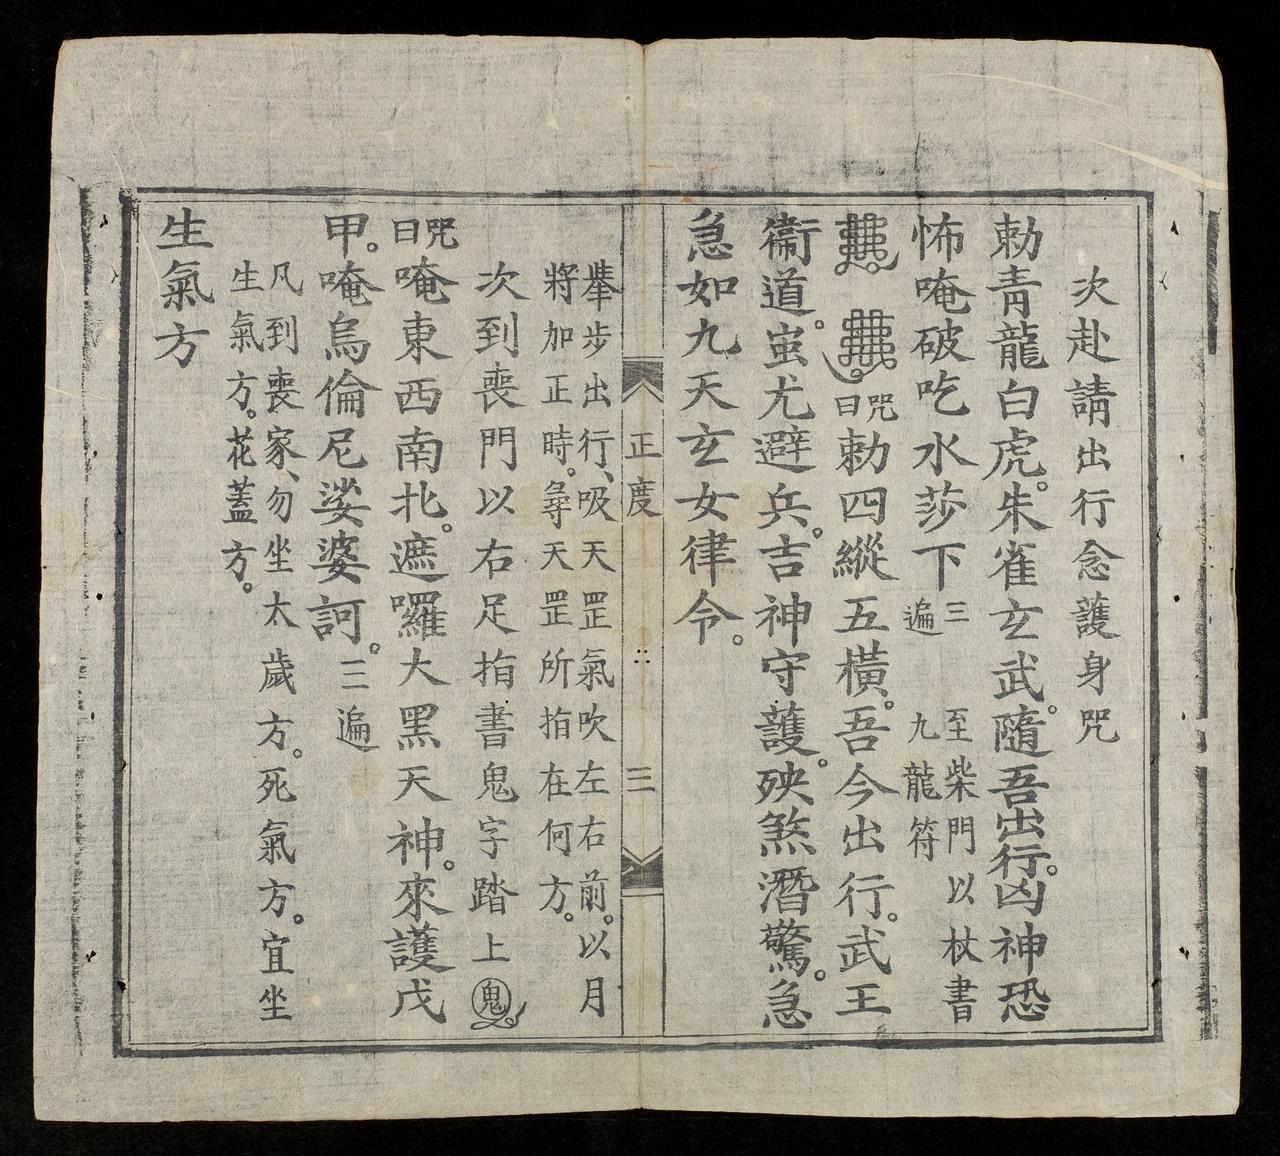 次赴請出行念護身咒
勅青龍白虎。朱雀玄武。隨吾出行。凶神恐
怖唵破吃水莎下三遍 至柴門以杖書九龍符
咒曰勅四縱五橫。吾今出行。武王
衞道。蚩尤避兵。吉神守護。殃煞潛驚。急
急如九天玄女律令。
正度 三
舉步出行、吸天罡氣吹左右前。以月
將加正時。尋天罡所指在何方。
次到喪門以右足指書鬼字踏上鬼
咒曰唵東西南北。遮囉大黑天神。來護戊
甲。唵烏倫尼娑婆訶。三遍
凡到喪家、勿坐太歲方。死氣方。宜坐
生氣方。花蓋方。
生氣方